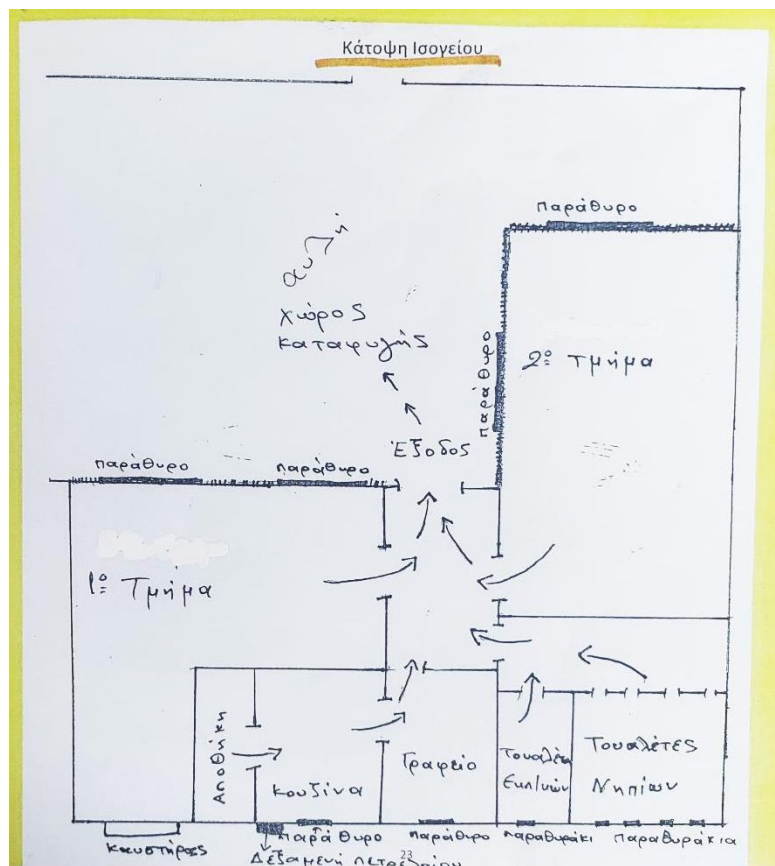 Κάτοψη Ισογείου
παράθυρο
αυλή
χώρος
καταφυγής
παράθυρο
2º Τμήμα
Έξοδος
παράθυρο
παράθυρο
1º Τμήμα
Αποθήκη
Κουζίνα
Γραφείο
Τουαλέτα
Τουαλέτες
Νηπίων
καυστήρας
παράθυρο
παράθυρο
παραθυράκι
παραθυράκια
Δεξαμενή πετρελαίου
23